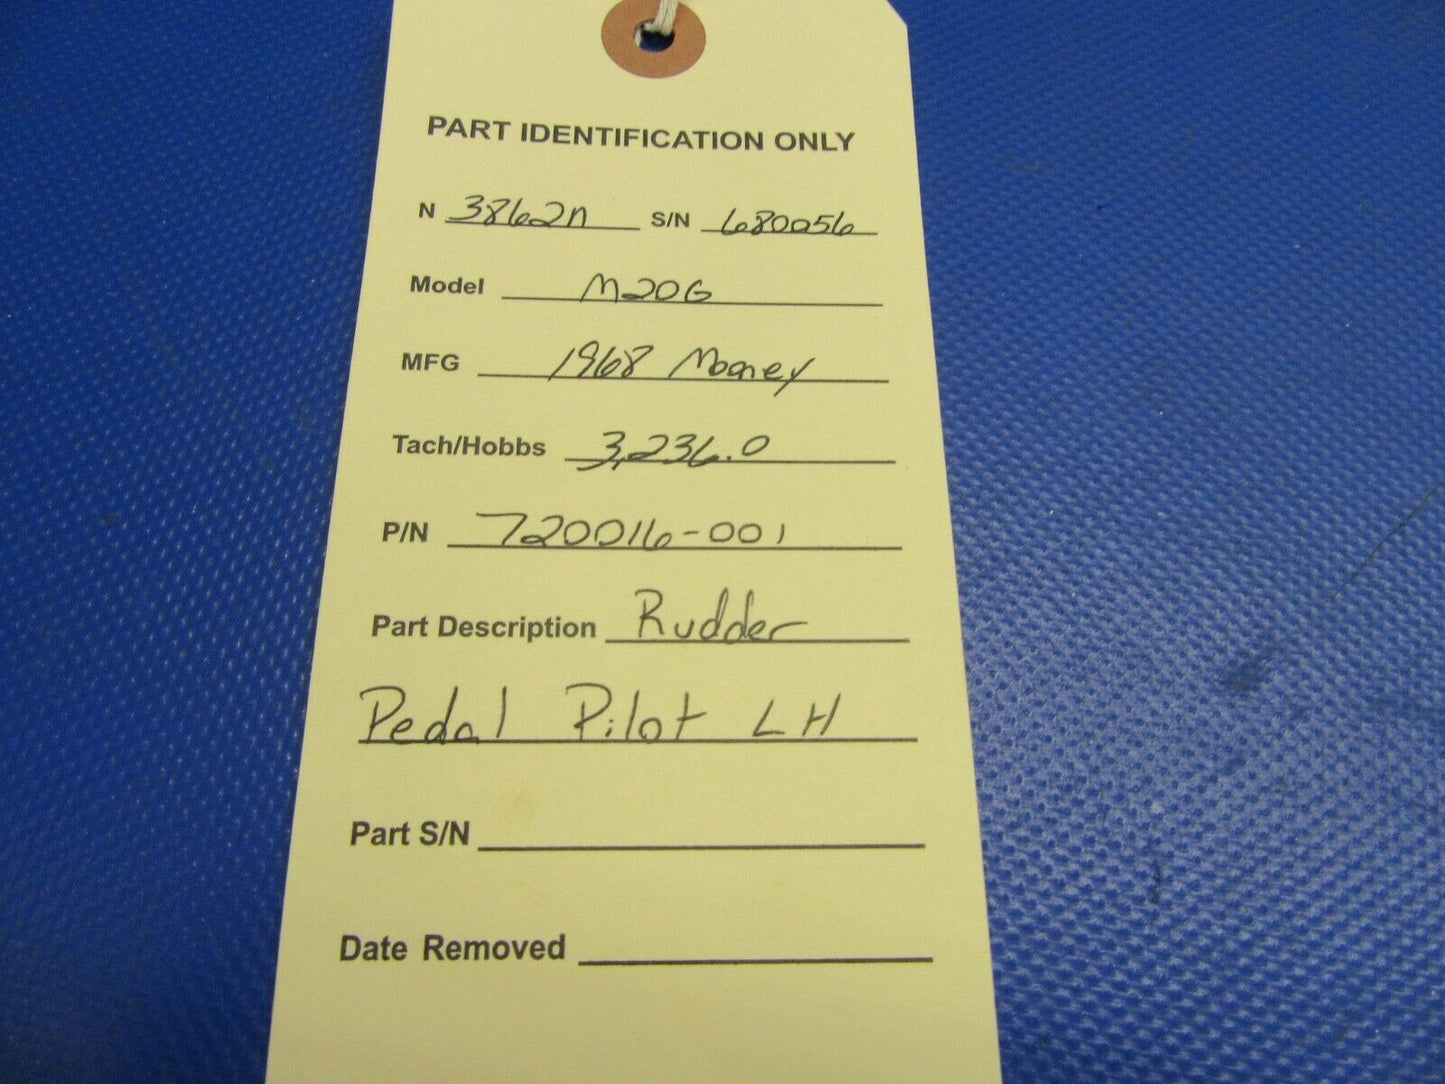 PART IDENTIFICATION ONLY
N 3862N S/N 680056
Model M20G
MFG 1968 Mooney
Tach/Hobbs 3,236.0
P/N 720016-001
Part Description Rudder
Pedal Pilot LH
Part S/N
Date Removed